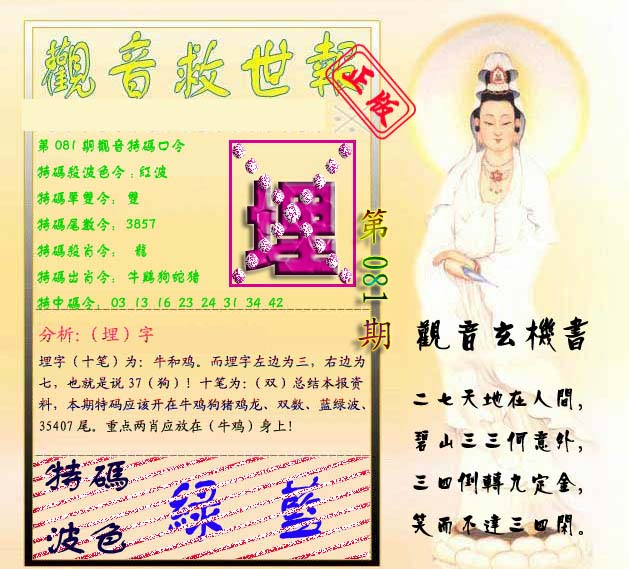 觀音救世報
正版
第081期觀音特碼口令
特碼殺波色令:紅波
特碼單雙令: 雙
特碼尾數令: 3857
特碼殺肖令: 龍
特碼出肖令: 牛鷄狗蛇猪
特中碼令: 03 13 16 23 24 31 34 42
埋
第081期
分析:(埋)字
埋字(十笔)为:牛和鸡。而埋字左边为三,右边为
七,也就是说37(狗)!十笔为:(双)总结本报资
料,本期特码应该开在牛鸡狗猪鸡龙、双数、蓝绿波、
35407尾。重点两肖应放在(牛鸡)身上!
特碼
波色
綠 藍
觀音玄機書
二七天地在人間,
碧山三三何意外,
三四倒轉九定金,
笑而不達三四閑。